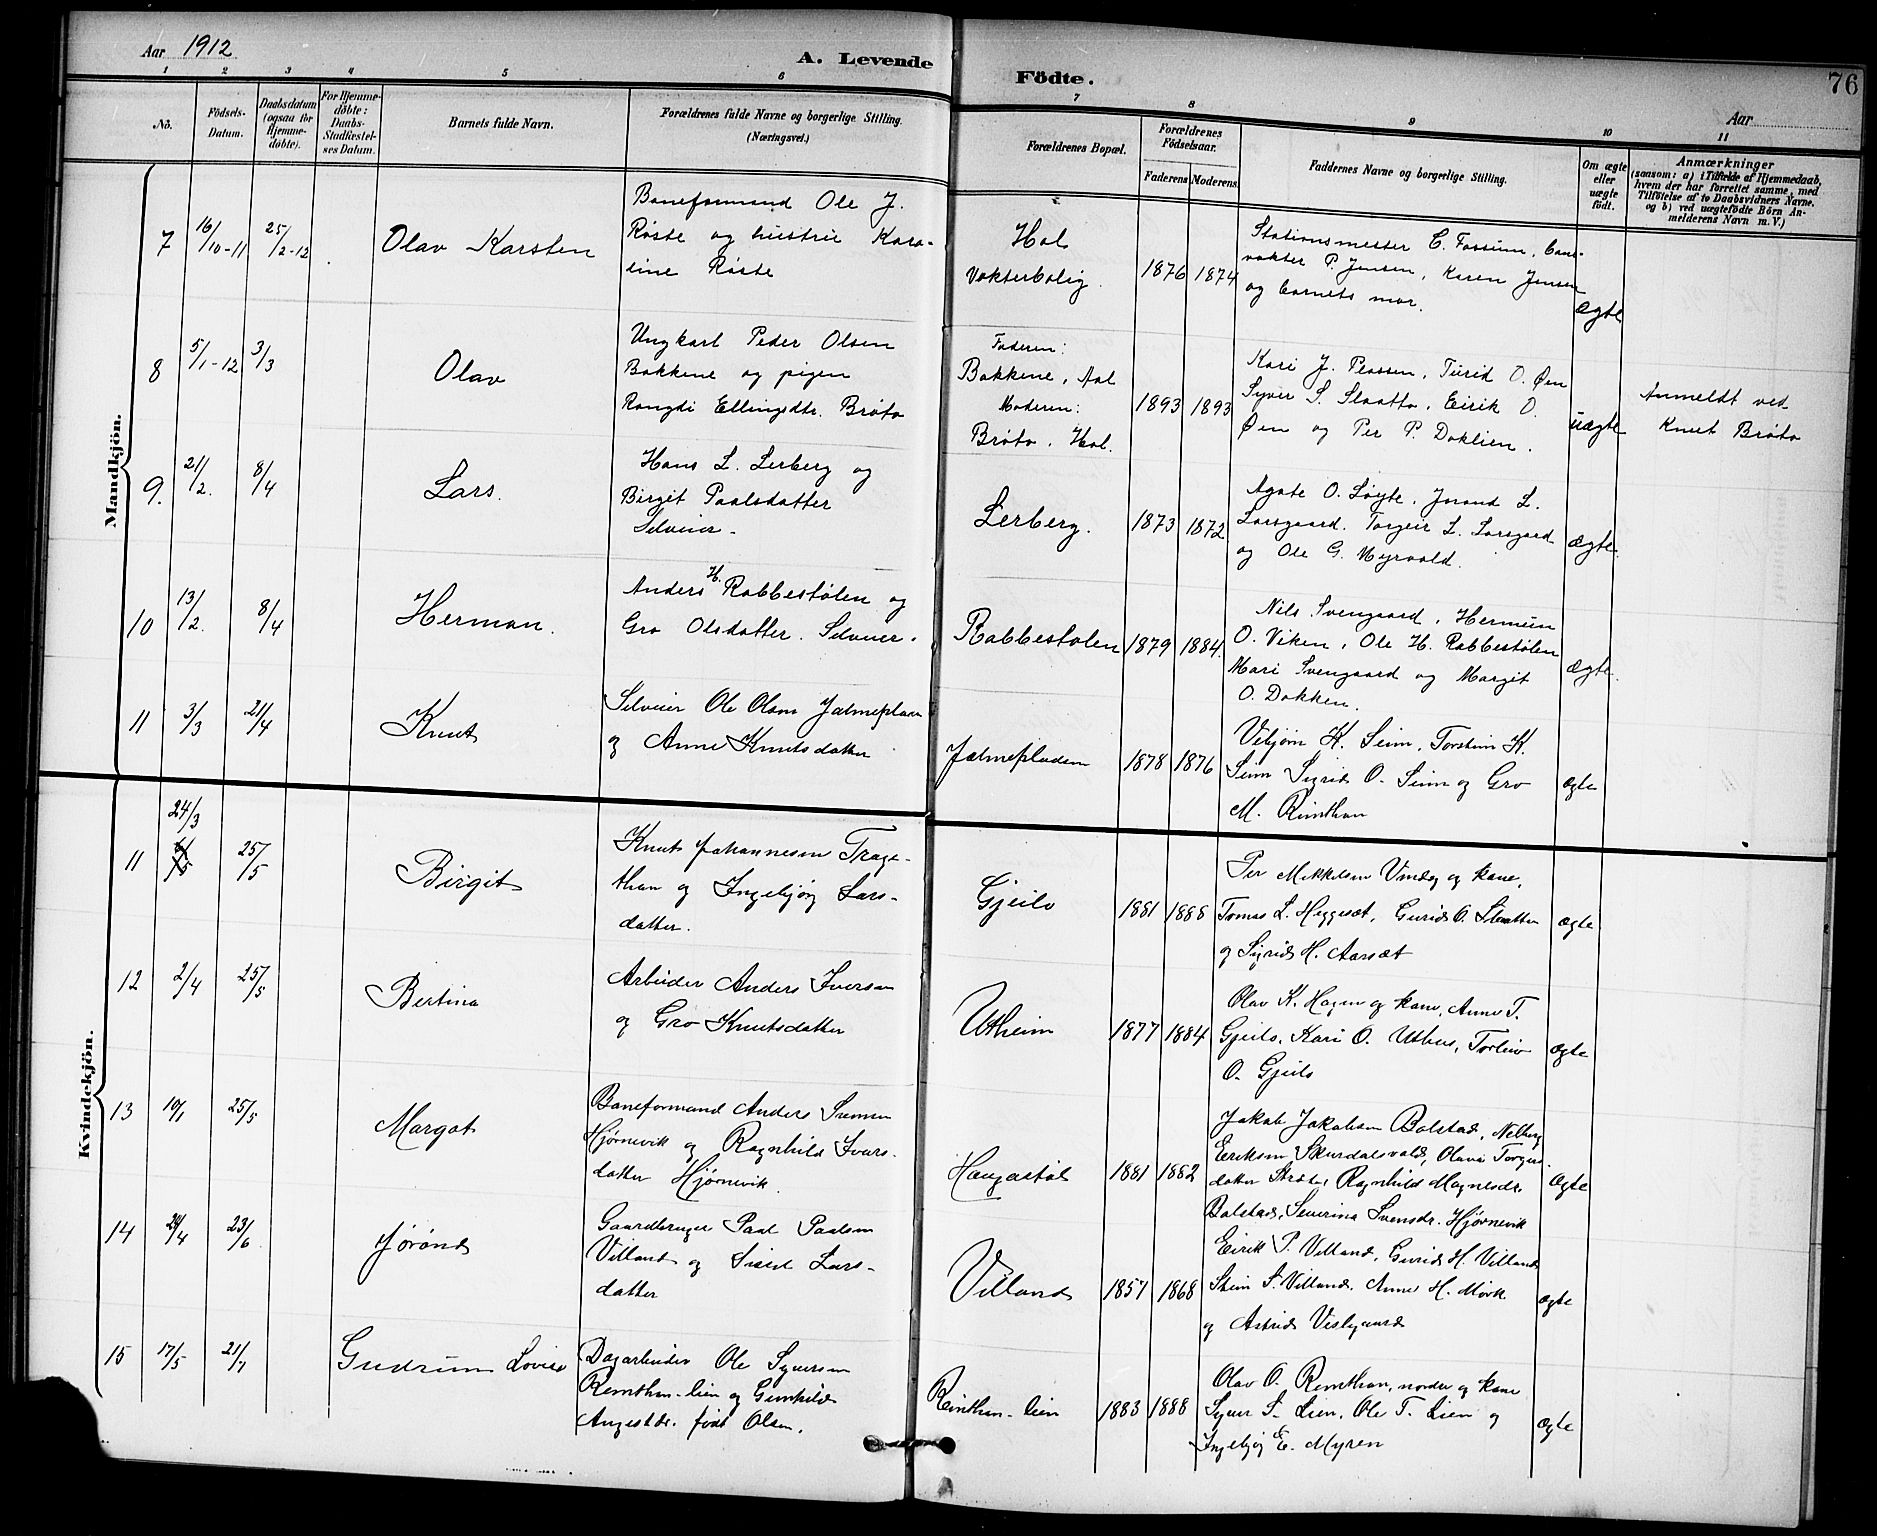 Aar 1912
A. Levende
Födte.
76
Aar
1 2 3 4 5 6 7 8 9 10 11
No.
Födsels-Datum.
Daabsdatum (ogsaa for Hjemme-döbte).
For Hjemme-döbte: Daabs-Stadfæstel-ses Datum.
Barnets fulde Navn.
Forældrenes fulde Navne og borgerlige Stilling. (Næringsvei.)
Forældrenes Bopæl.
Forældrenes Födselsaar.
Faderens Moderens.
Faddernes Navne og borgerlige Stilling.
Om ægte eller uægte födt.
Anmærkninger
(saasom: a) i Tilfælde af Hjemmedaab,
hvem der har forrettet samme, med
Tilföielse af to Daabsvidners Navne,
og b) ved uægtefödte Börn An-
melderens Navn m. V.)
Mandkjön.
7 16/10-11 25/2-12 Olav Karsten
Baneformand Ole J.
Røste og hustru Karo-
line Røste
Hol
Vokterbolig.
1876 1874
Stationsmester C. Fossum, bane-
vokter P. Jensen, Karen Jensen
og barnets mor.
ægte
8 5/1-12 3/3 Olav
Ungkarl Peder Olsen
Bakkene og pigen
Rangdi Ellingsdtr. Brøto
Faderen:
Bakkene, Aal
Moderen:
Brøto, Hol.
1893 1893
Kari J. Plassen, Turid O. Øen
Syver S. Slaatto, Eirik O.
Øen og Per P. Doklien.
uægte
Anmeldt ved
Knut Brøto
9. 21/2. 8/4 Lars.
Hans L. Lerberg og
Birgit Paalsdatter
Selveier.
Lerberg.
1873 1872
Agate O. Løyte, Jorand L.
Larsgaard. Torgeir L. Larsgard
og Ole G. Myrvold.
ægte.
10 13/2. 8/4 Herman.
Anders H. Rabbestølen og
Gro Olsdatter. Selveier.
Rabbestølen
1879 1884.
Nils Svengaard, Hermun
O. Viken, Ole H. Rabbestølen
Mari Svengaard og Margit
O. Dokken.
ægte.
11 3/3 21/4 Knut
Selveier Ole Olsen Jalmeplan
og Anne Knutsdatter
Jalmepladsen
1878 1876
Vebjørn K. Seim, Torstein K.
Seim Sigrid O. Seim og Gro
M. Reinthon
ægte
Kvindekjön.
11 24/3 25/5 Birgit
Knut Johannesen Trage-
thon og Ingebjørg Lars-
datter.
Gjeilo
1881 1888
Per Mikkelsen Vindeg og kone,
Tomas L. Heggesæt, Gurid O. Slaatten
og Sigrid H. Aarsæt
ægte
12 2/4 25/5 Bertina
Arbeider Anders Iversen
og Gro Knutsdatter
Utheim
1877 1884
Olav K. Hagen og kone, Anne T.
Gjeilo, Kari O. Uthus, Torleiv
O. Gjeilo
ægte
13 10/1 25/5 Margot
Baneformand Anders Svensen
Hjørnevik og Ragnhild Ivars-
datter Hjørnevik.
Haugastøl
1881 1882
Jakob Jakobsen Bolstad, Nelberg
Eriksen Skurdalsvold, Olava Torgers-
datter Strøte, Ragnhild Magnesdr.
Bolstad, Severina Svensdr. Hjørnevik
ægte
14 24/4 23/6 Jørond
Gaardbruger Paal Paalsen
Villand og Sissel Lars-
datter
Villand
1857 1868
Eirik P. Villand, Gurid H. Villand
Stein S. Villand, Anne H. Mørk
og Astrid Vislegaard
ægte
15 17/5 21/7 Gudrun Lovise
Dagarbeider Ole Syversen
Reinthon-lien og Gunhild
Augestdr. født Olsen.
Reinthon-lien
1883 1888
Olav O. Reinthon, nordre og kone
Syver S. Lien, Ole T. Lien og
Ingebjørg E. Myren
ægte